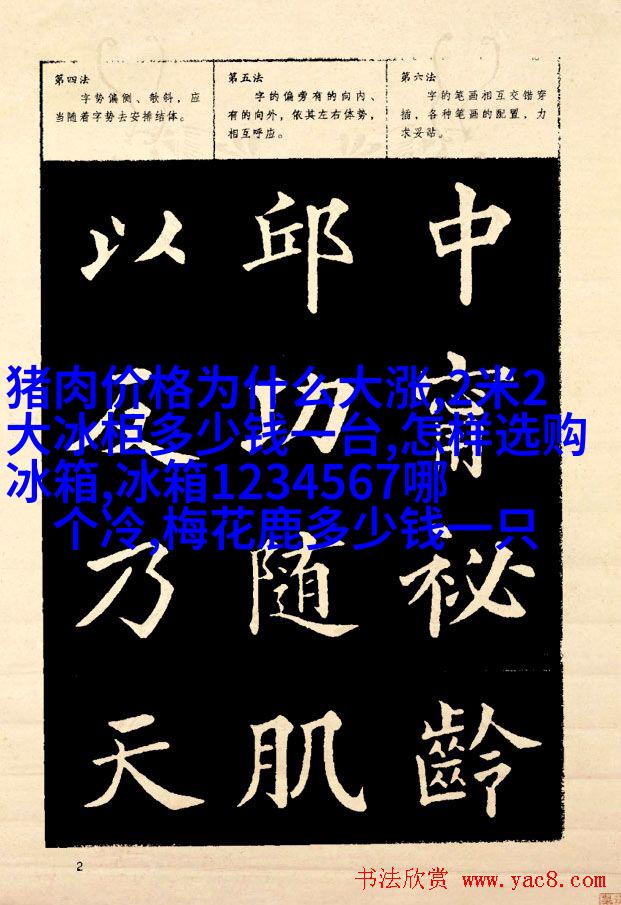 第四法
字势偏侧、欹斜，应
当随着字势去安排结体。
第五法
字的偏旁有的向内、
有的向外，依其左右体势，
相互呼应。
第六法
字的笔画相互交错穿
插，各种笔画的配置，力
求妥站。
以 邱 中
功
乃 随 秘
天 肌 齡
猪肉价格为什么大涨,2米2
大冰柜多少钱一台,怎样选购
冰箱,冰箱1234567哪
个冷,梅花鹿多少钱一只
2
书法欣赏 www.yac8.com